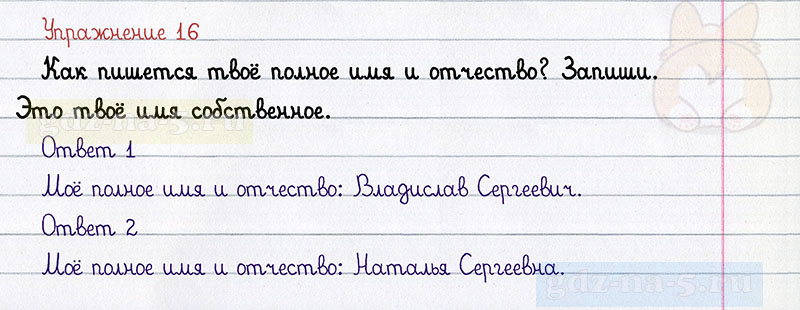 Упражнение 16
Как пишется твоё полное имя и отчество? Запиши.
Это твоё имя собственное.
gdz-na-5.ru
Ответ 1
Моё полное имя и отчество: Владислав Сергеевич.
Ответ 2
Моё полное имя и отчество: Наталья Сергеевна.
gdz-na-5.ru